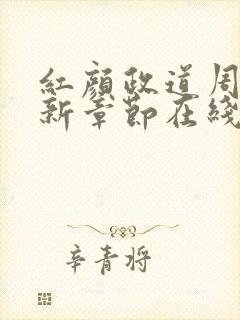 紅顏政道周
新章節在綫
辛青将